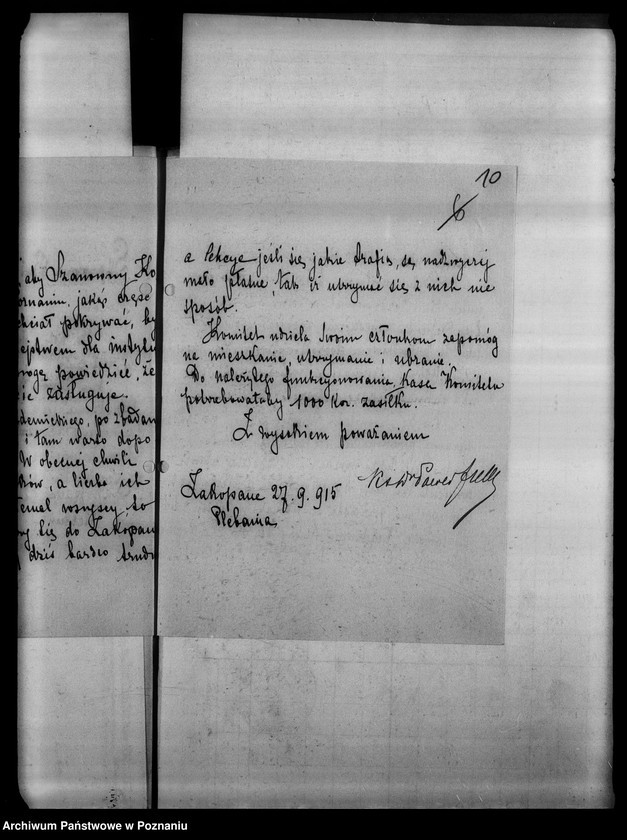 10
6
aby Szanownny Ko
oznaniu, jakąś część
chciał pokrywać, by
eństwem dla instytu
mogę powiedzieć, że
ie zasługuje.
demickiego, po zbadan
i tam warto dopo
W obecnej chwili
ków, a liczba ich
niemal wszyscy to
się do Zakopan
dziś bardzo trudn
a lekcye jeśli się jakie trafią, są nadzwyczaj
mało płatne, tak iż utrzymać się z nich nie
sposób.
Komitet udziela swoim członkom zapomóg
na mieszkanie, utrzymanie i ubranie.
Do należytego funkcyonowania, kasa Komitetu
potrzebowałaby 1000 Kor. zasiłku.
Z wysokiem poważaniem
Ks Dr Paweł
Zakopane 27. 9. 915
Plebania
Archiwum Państwowe w Poznaniu